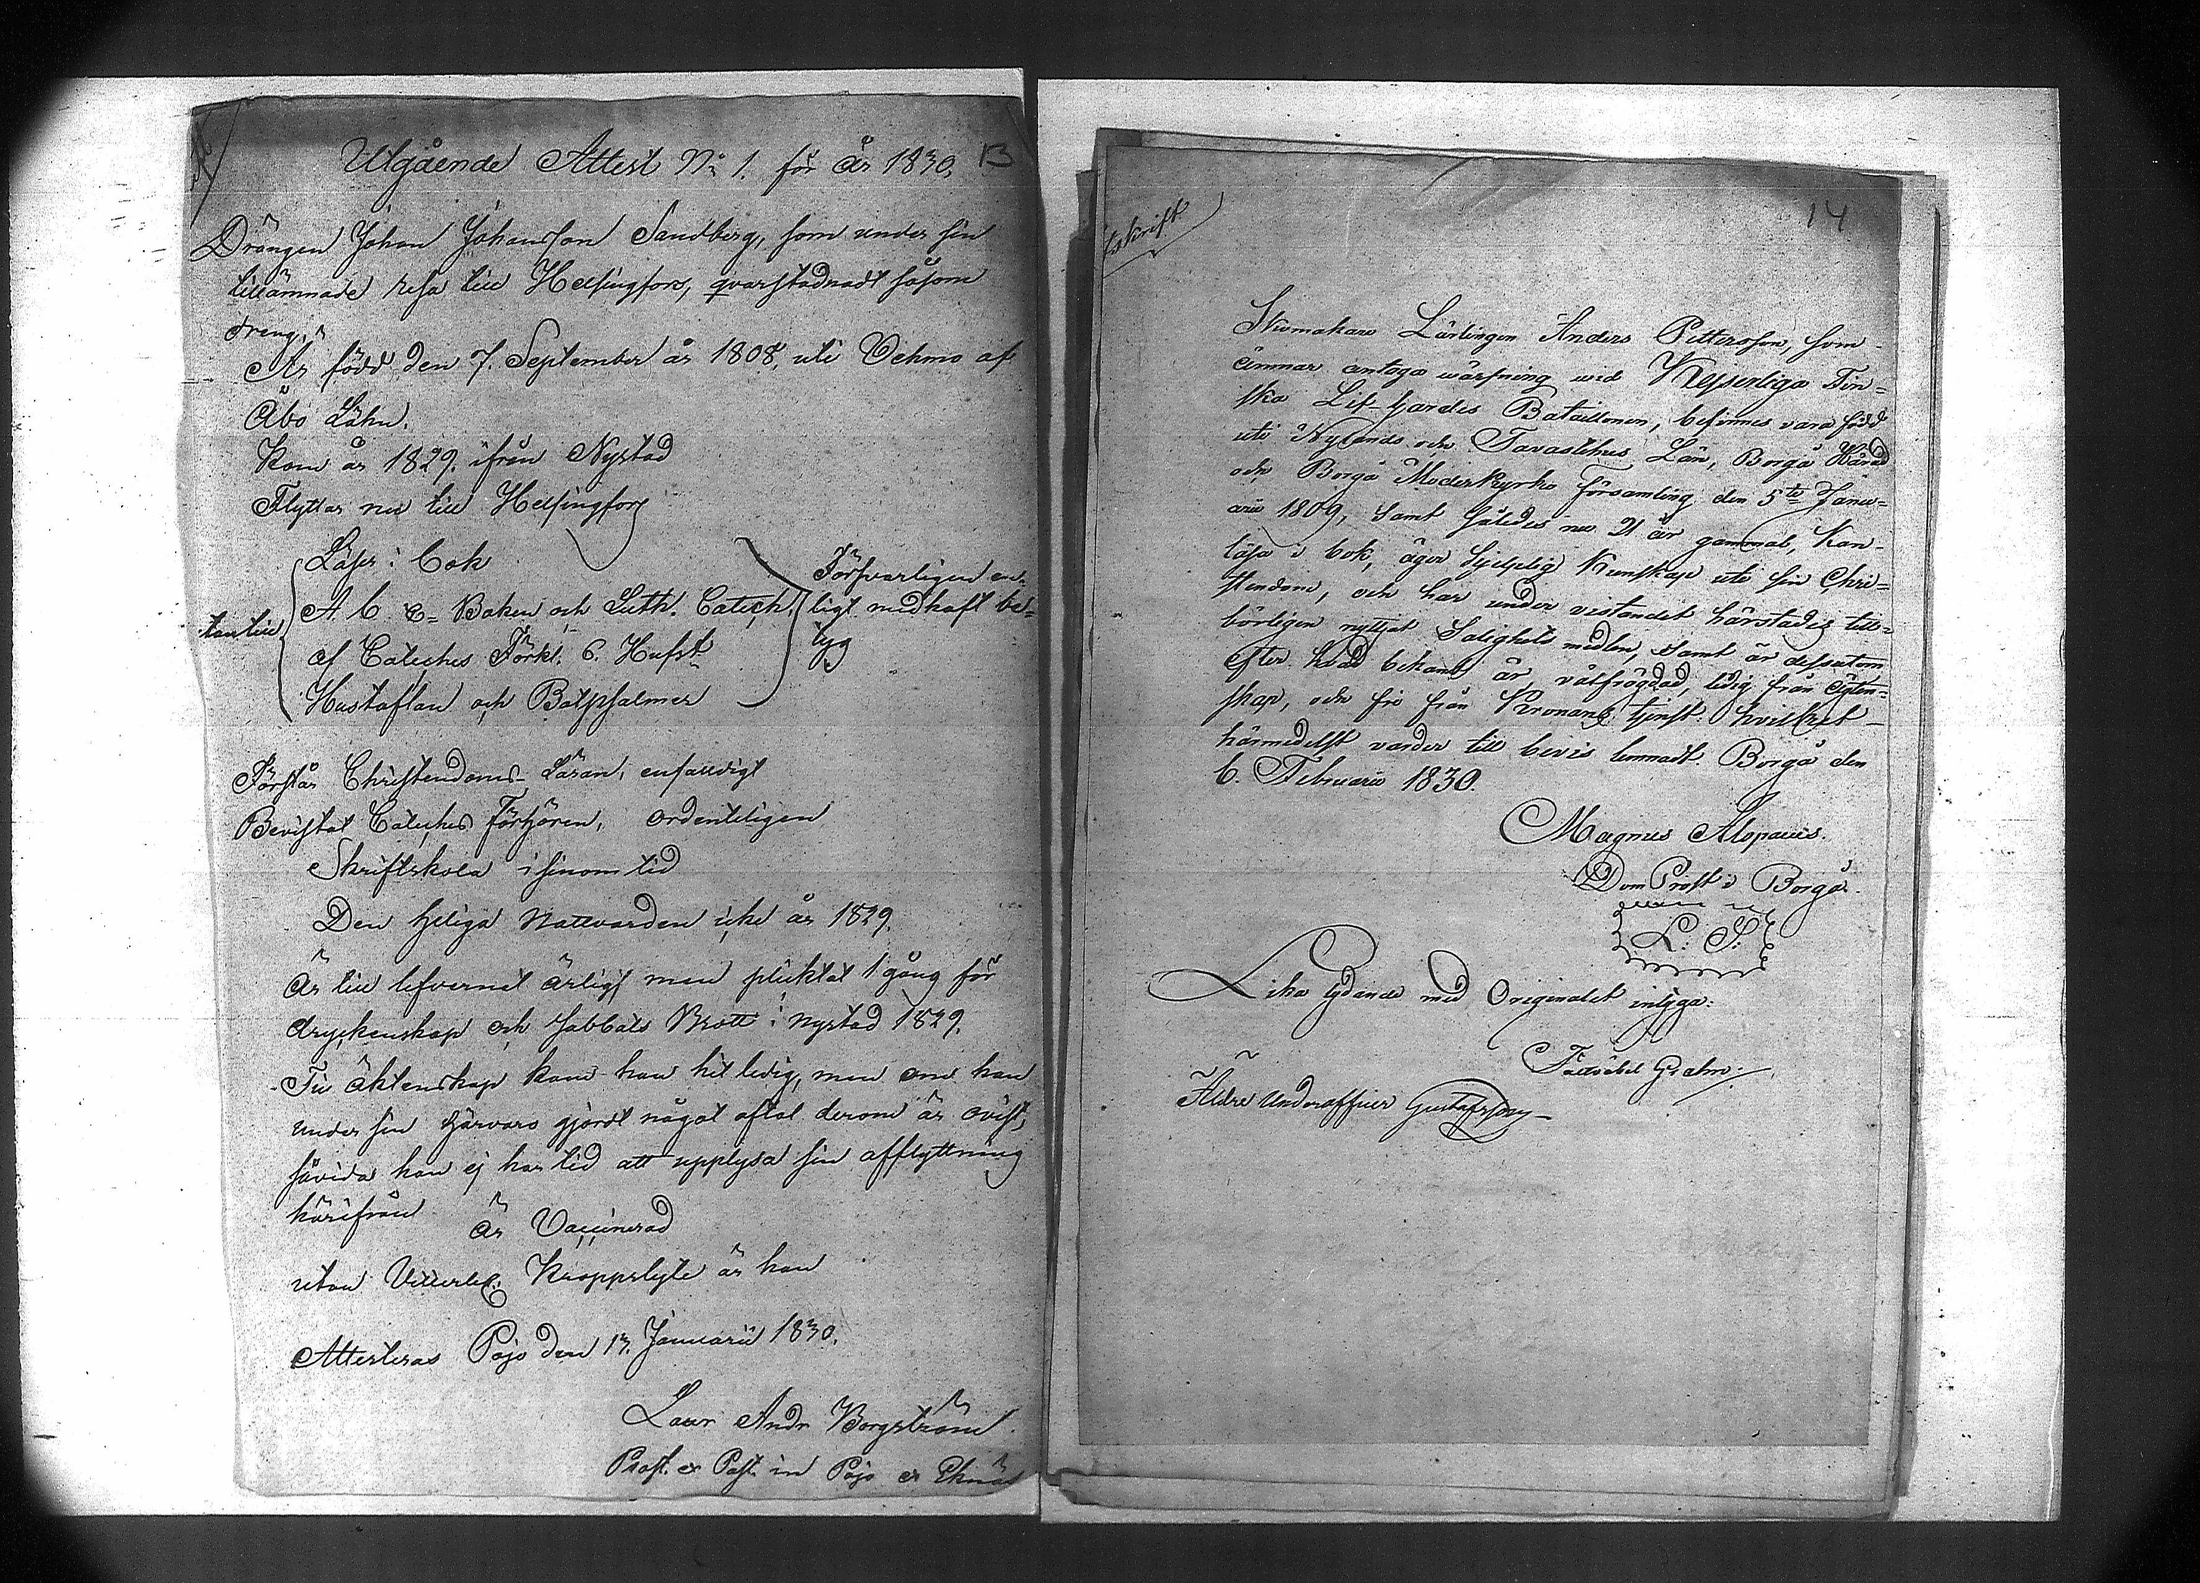 Utgående Attest No 1. för år 1830. 13
Drängen Johan Johansson Sandberg, som under sin
tillämnade resa till Helsingfors, qvarstadnadt såsom
dreng,
Är född den 7. September år 1808, uti Vehmo af
Åbo Lähn.
Kom år 1829. ifrån Nystad
Flyttar nu till Helsingfors
Läser i bok
A b c= Boken och Luth. Catech.
af Cateches Förkl. 6. Hufst
Hustaflan och Botpsalmer
tantill
Försvarligen en-
ligt medhaft be-
tyg
Förstår Christendoms Läran, enfaldigt
Bevistat Cateches Förhören, ordenteligen
Skriftskola i sinom tid
Den heliga Nattvarden icke år 1829.
Är till lefvernet ärligt men pliktat 1 gång för
dryckenskap och Sabbats Brott i Nystad 1829.
Till äktenskap kom han hit ledig, men om han
under sin härvaro gjordt något aftal derom är ovist,
såvida han ej har tid att upplysa sin afflyttning
härifrån
är Vaccinerad
utan Vitterlig Kroppslyte är han
Attesteras Pojo den 13. Januarii 1830.
Laur Andr Borgström
Prost. & Past. in Pojo & Eknäs
14
skrift
Skomakare Lärlingen Anders Pettersson, som
ämnar antaga wärfning wid Kejserliga Fin-
ska Lif-Gardes Bataillonen, befinnes vara född
uti Nylands och Tavastehus Län, Borgå Härad
och Borgå Moderkyrko församling den 5te Janu-
arii 1809, samt således nu 21 år gammal, kan
läsa i bok, äger hjelplig Kunskap uti sin Chri-
stendom, och har under vistandet härstädes till-
börligen nyttjat Salighets medlen, samt är dessutom
efter hvad bekant är välfrägdad, ledig från ägten-
skap, och fri från Kronans tjenst. hvilket
härmedelst varder till bevis lemnadt. Borgå den
6. Februarii 1830.
Magnus Alopaeus.
DomProst i Borgå.
L. S.
Lika lydande med Originalet intyga:
Grahn
Äldre Underofficer Gustafsson